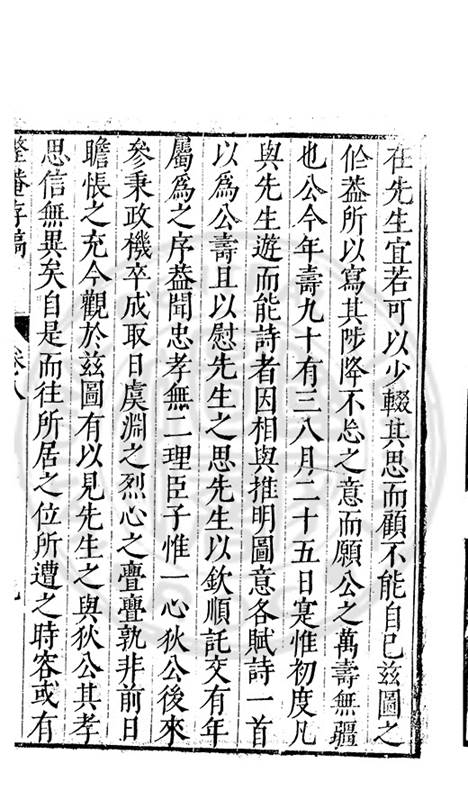 在先生宜若可以少輟其思而顧不能自已兹圖之
作葢所以寫其陟降不忘之意而願公之萬壽無疆
也公今年壽九十有三八月二十五日寔惟初度凡
與先生遊而能詩者因相與推明圖意各賦詩一首
以為公壽且以慰先生之思先生以欽順託交有年
屬為之序葢聞忠孝無二理臣子惟一心狄公後來
參秉政機卒成取日虞淵之烈心之亹亹孰非前日
瞻悵之充今觀於兹圖有以見先生之與狄公其孝
思信無異矣自是而往所居之位所遭之時容或有
整菴存稿
卷八
九